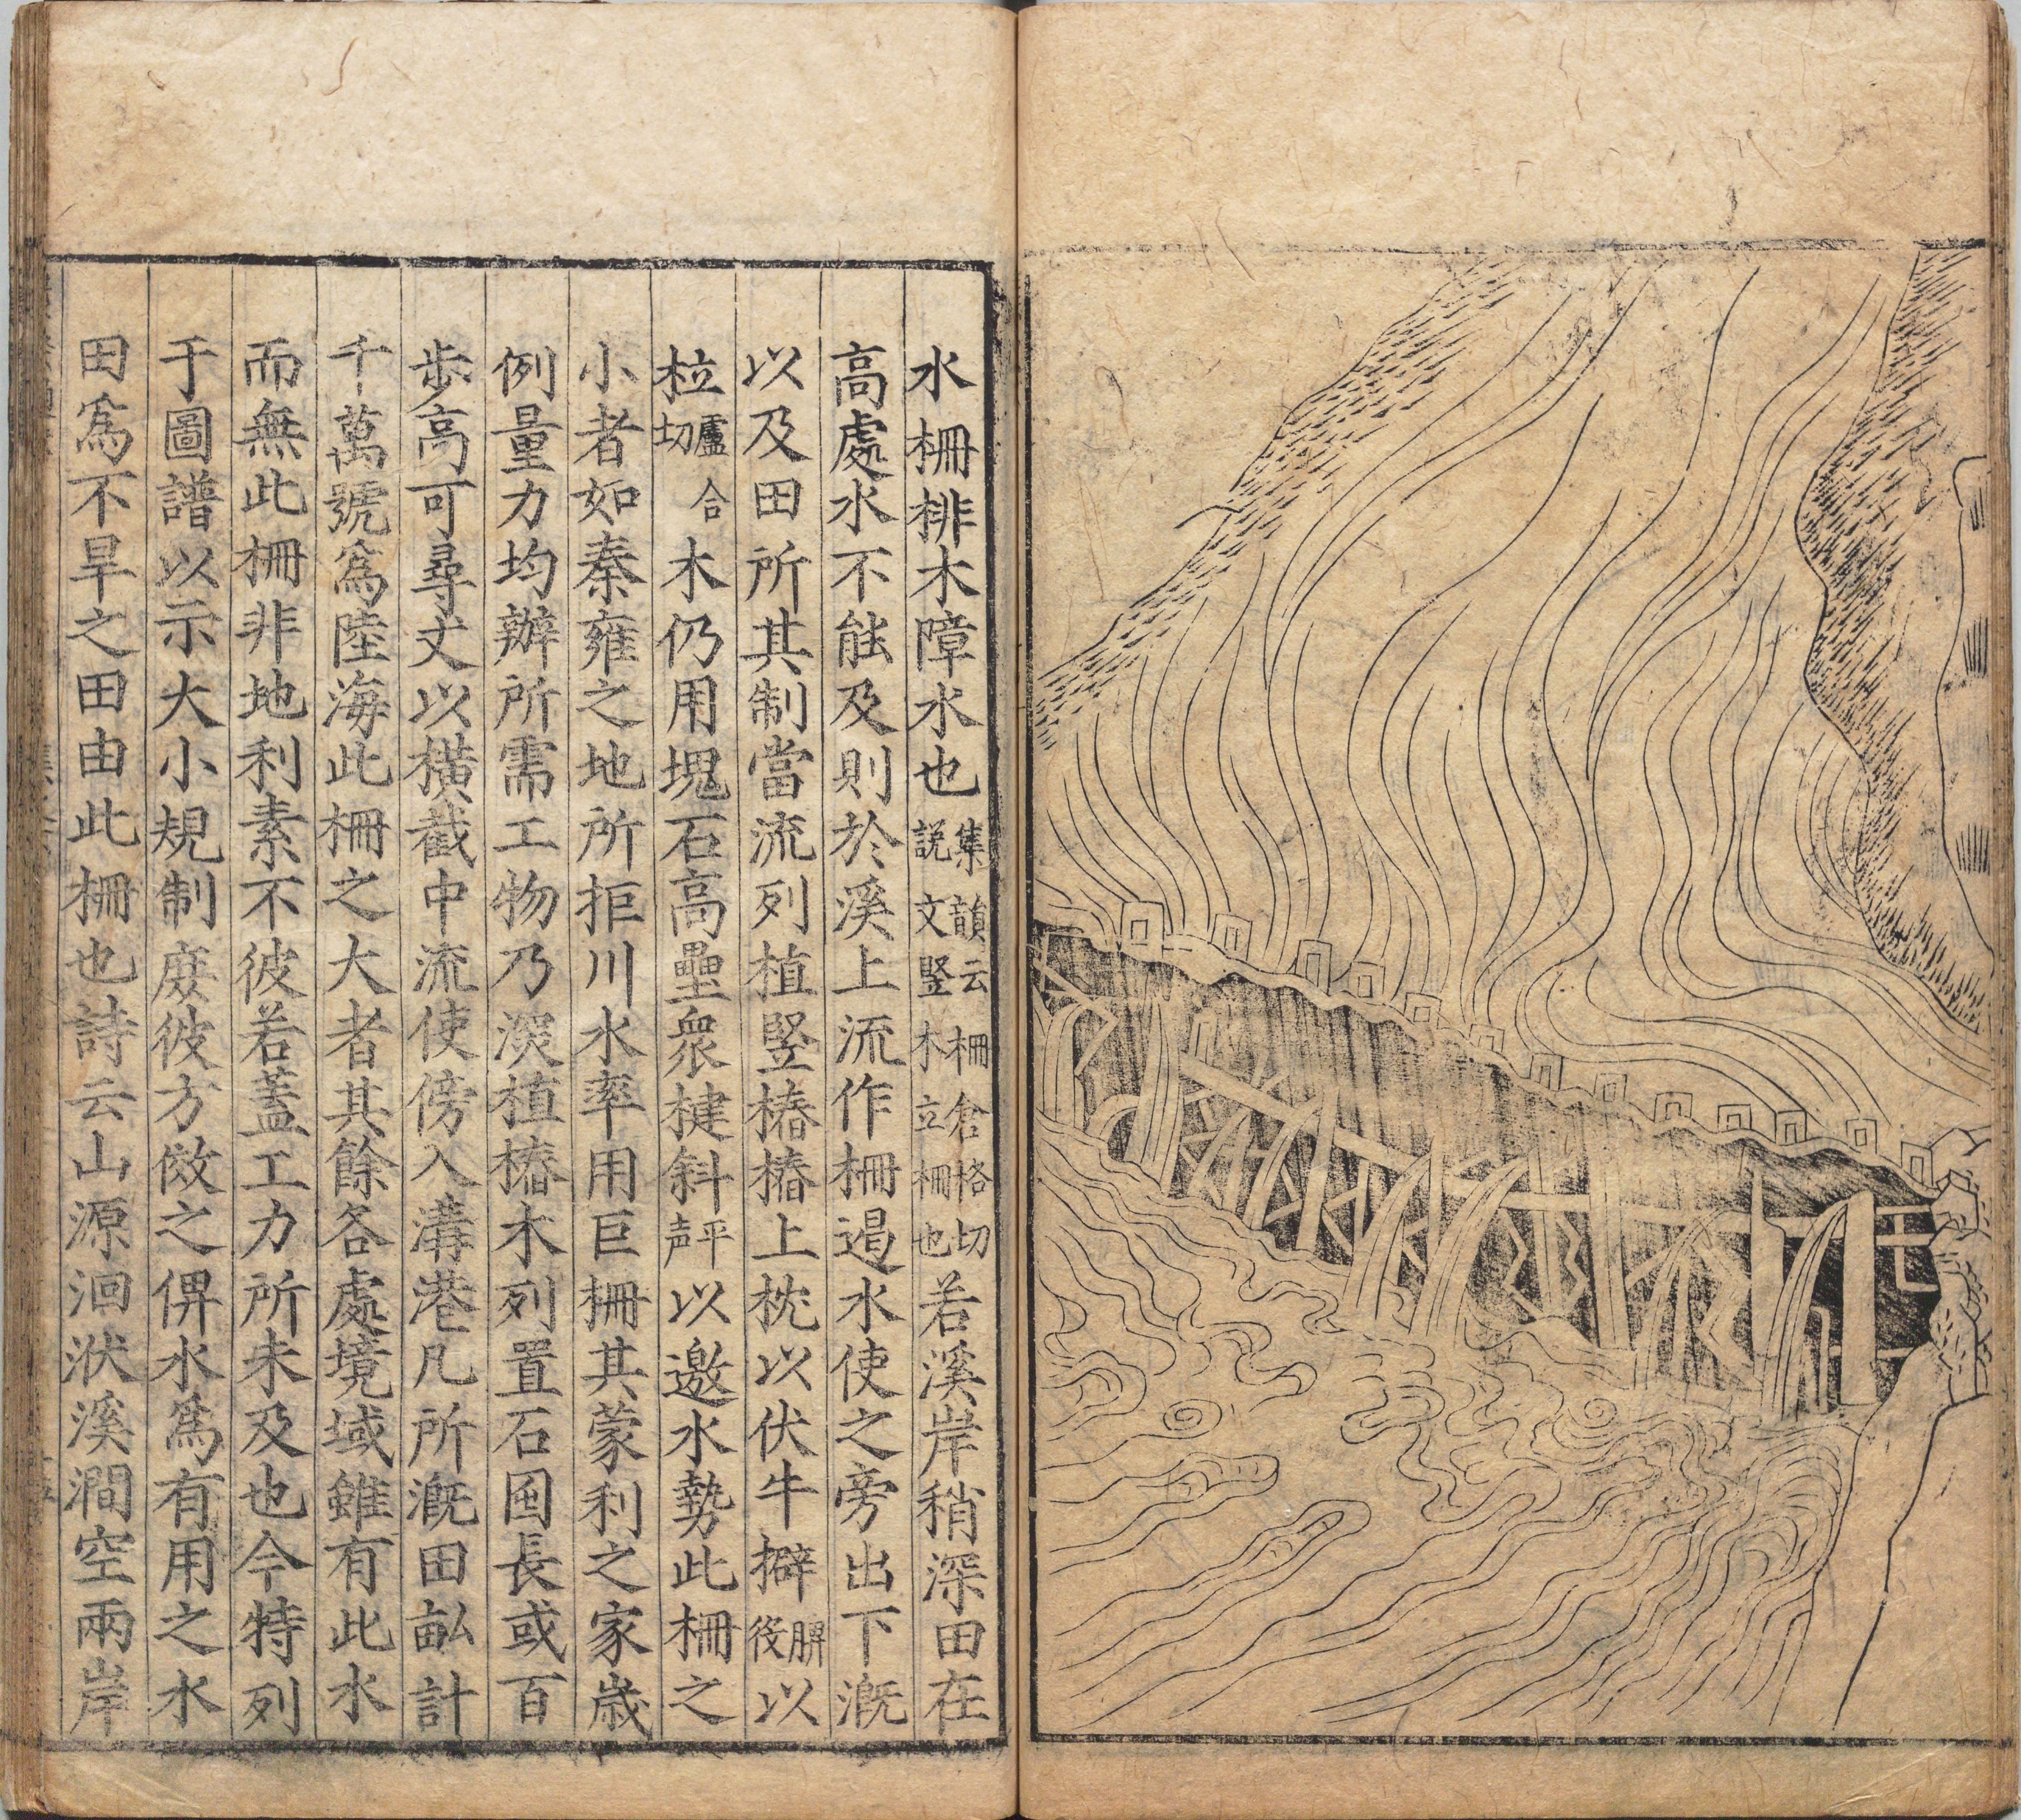 水栅排木障水也集韻云栅倉格切說文竪木立栅也若溪岸稍深田在
高處水不能及則於溪上流作栅遏水使之旁出下溉
以及田所其制當流列植竪樁樁上枕以伏牛擗䏶役以
柆盧合切木仍用塊石高壘衆楗斜平声以邀水勢此栅之
小者如秦雍之地所拒川水率用巨栅其蒙利之家歳
例量力均辦所需工物乃深植樁木列置石囤長或百
歩高可尋丈以橫截中流使傍入溝港凡所溉田畝計
千萬號爲陸海此栅之大者其餘各處境域雖有此水
而無此栅非地利素不彼若蓋工力所未及也今特列
于圖譜以示大小規制庻彼方倣之俾水爲有用之水
田爲不旱之田由此栅也詩云山源洄洑溪澗空兩岸